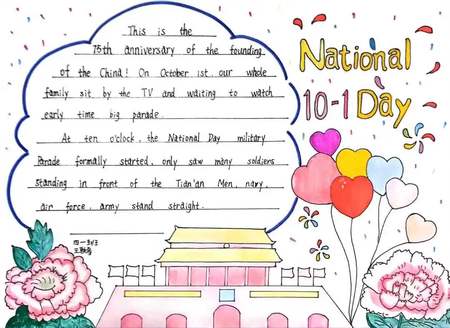 National
10-1 Day
This is the
75th anniversary of the founding
of the China! On October 1st, our whole
family sit by the TV and waiting to watch
early time big parade.
At ten o'clock, the National Day military
Parade formally started, only saw many soldiers
standing in front of the Tian'an Men, navy,
air force, army stand straight.